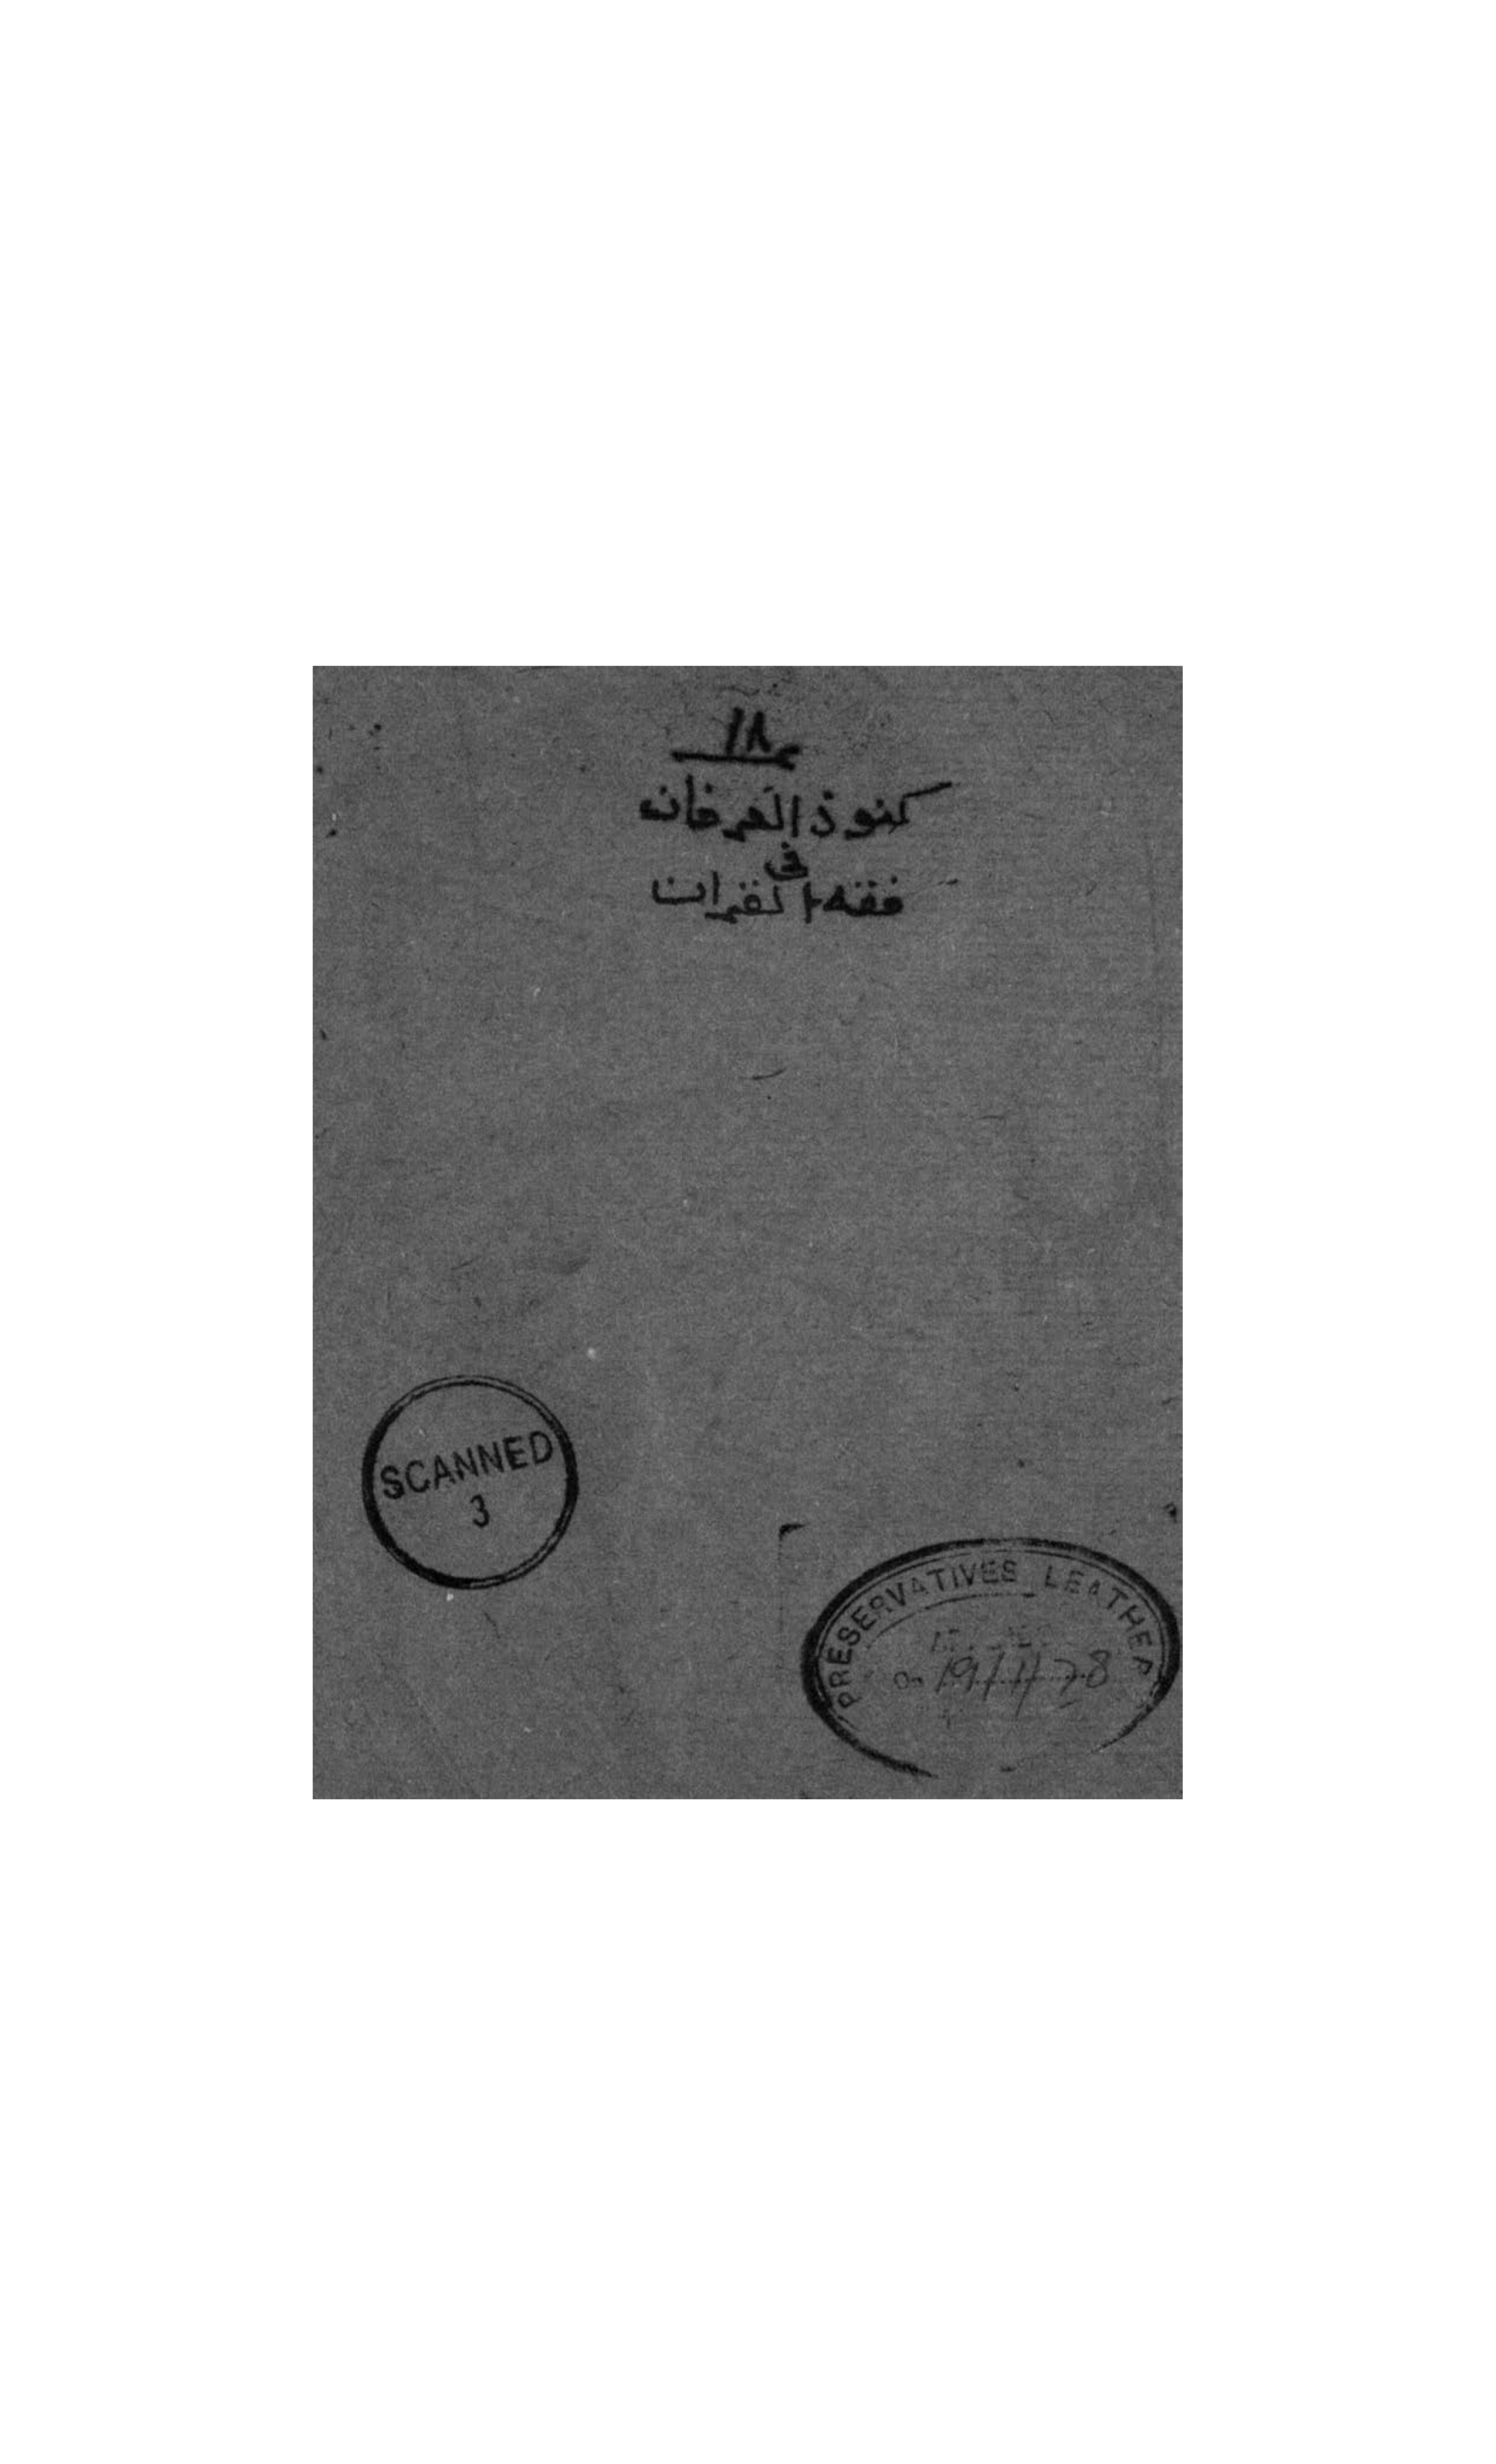 ١٨
كنوز العرفان
في
فقه القران
SCANNED
3
PRESERVATIVES LEATHER
On 19/11/78